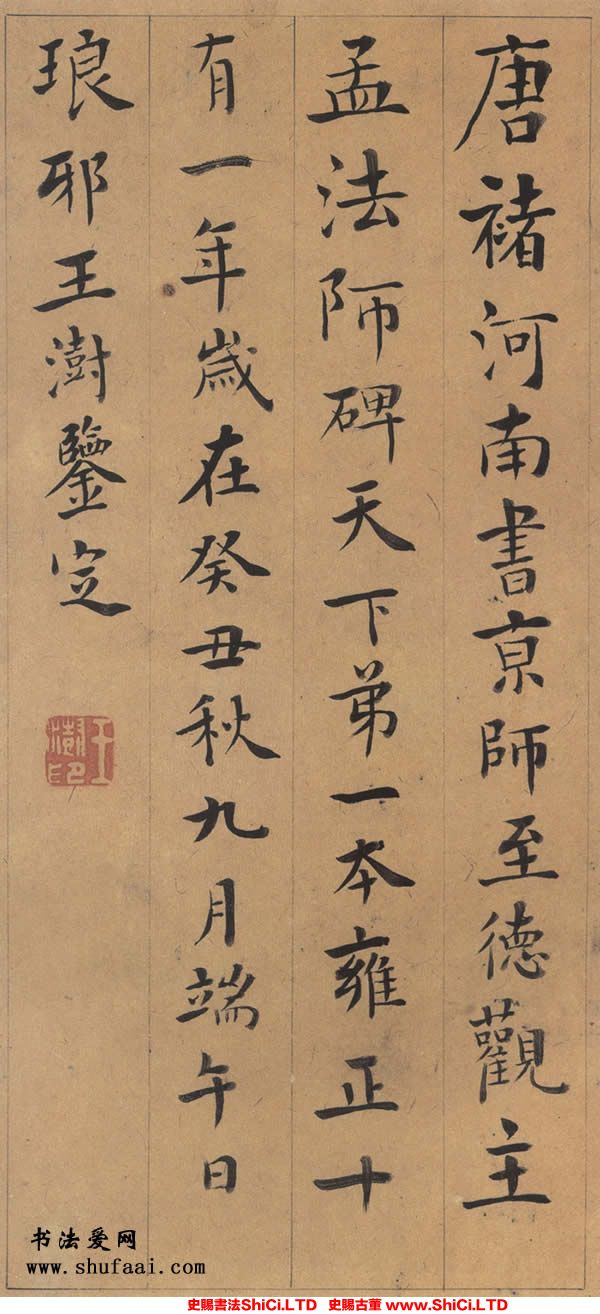 唐褚河南書京師至德觀主
孟法師碑天下弟一本雍正十
有一年歲在癸丑秋九月端午日
琅邪王澍鑒定
王澍印
书法爱网
www.shufaai.com
史賜書法ShiCi.LTD 史賜古董 www.ShiCi.LTD